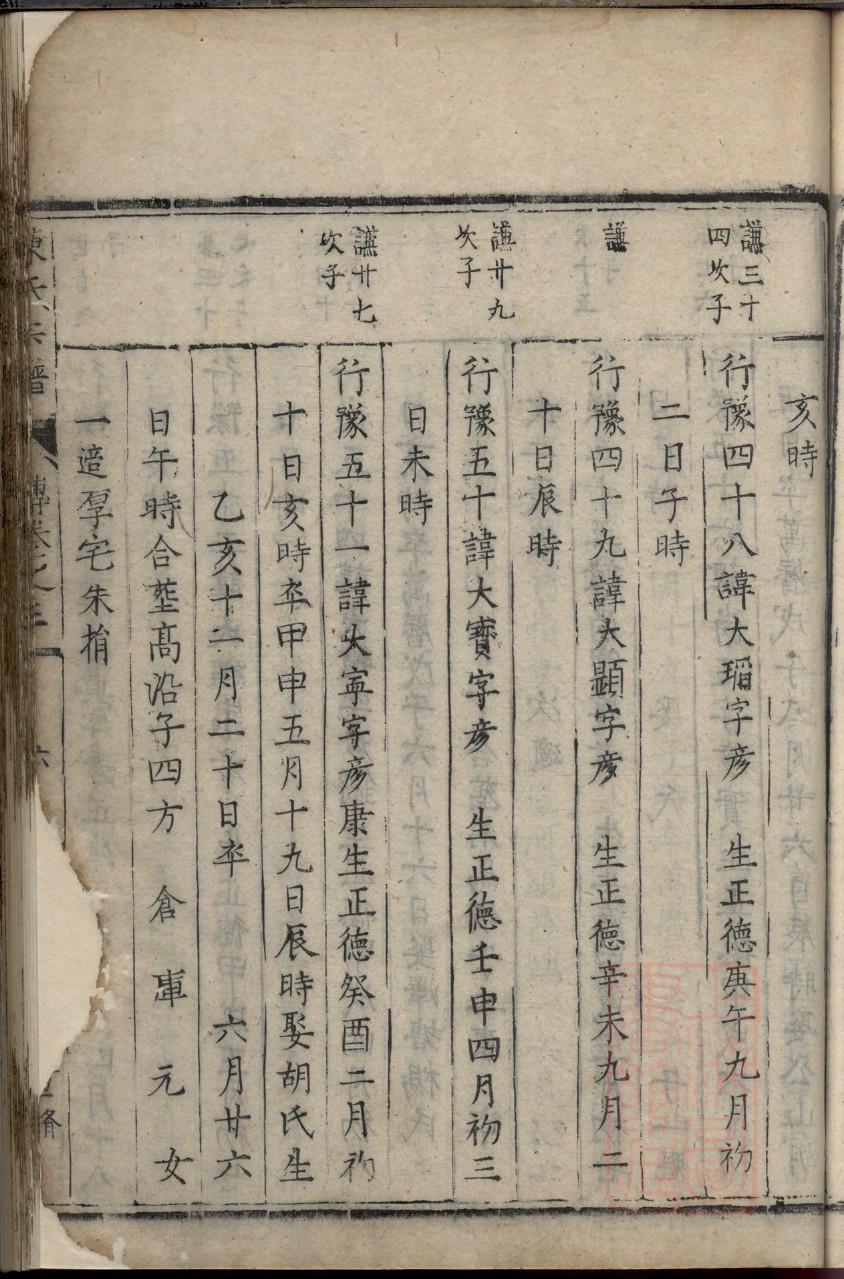 亥時
謙三十
四次子
行豫四十八諱大瑫字彦　生正德庚午九月初
二日子時
謙
行豫四十九諱大顯字彦　生正德辛未九月二
十日辰時
謙廿九
次子
行豫五十諱大寶字彦　生正德壬申四月初三
日未時
謙廿七
次子
行豫五十一諱大寧字彦康生正德癸酉二月初
十日亥時卒甲申五月十九日辰時娶胡氏生
乙亥十二月二十日卒　六月廿六
日午時合塟高沿子四方　倉　庫　元　女
一適厚宅朱
氏宗譜
傳卷之
六